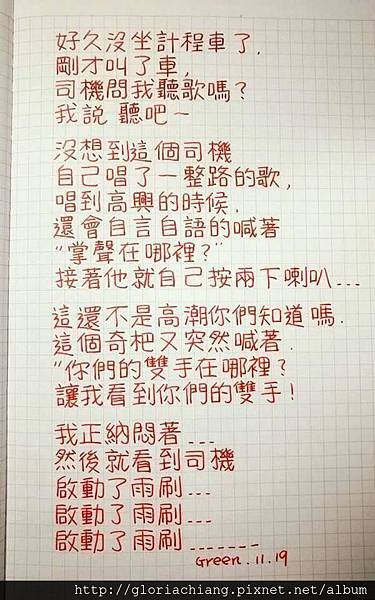 好久沒坐計程車了,
剛才叫了車,
司機問我聽歌嗎?
我説 聽吧~
沒想到這個司機
自己唱了一整路的歌,
唱到高興的時候,
還會自言自語的喊著
"掌聲在哪裡?"
接著他就自己按兩下喇叭...
這還不是高潮你們知道嗎.
這個奇杷又突然喊著.
"你們的雙手在哪裡?
讓我看到你們的雙手!
我正納悶著...
然後就看到司機
啟動了雨刷...
啟動了雨刷...
啟動了雨刷......
Green.11.19
http://gloriachiang.pixnet.net/album